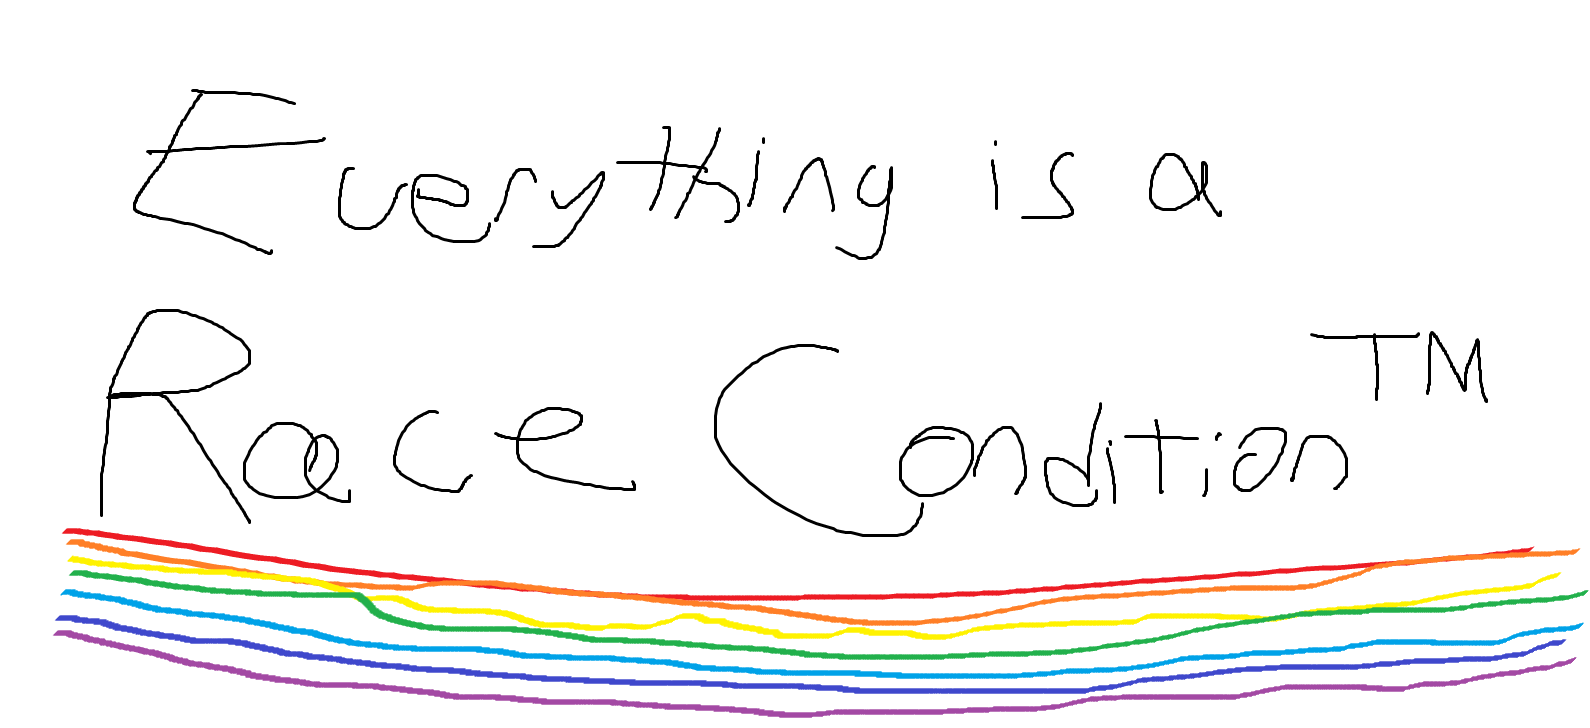 Everything is a
Race Condition™